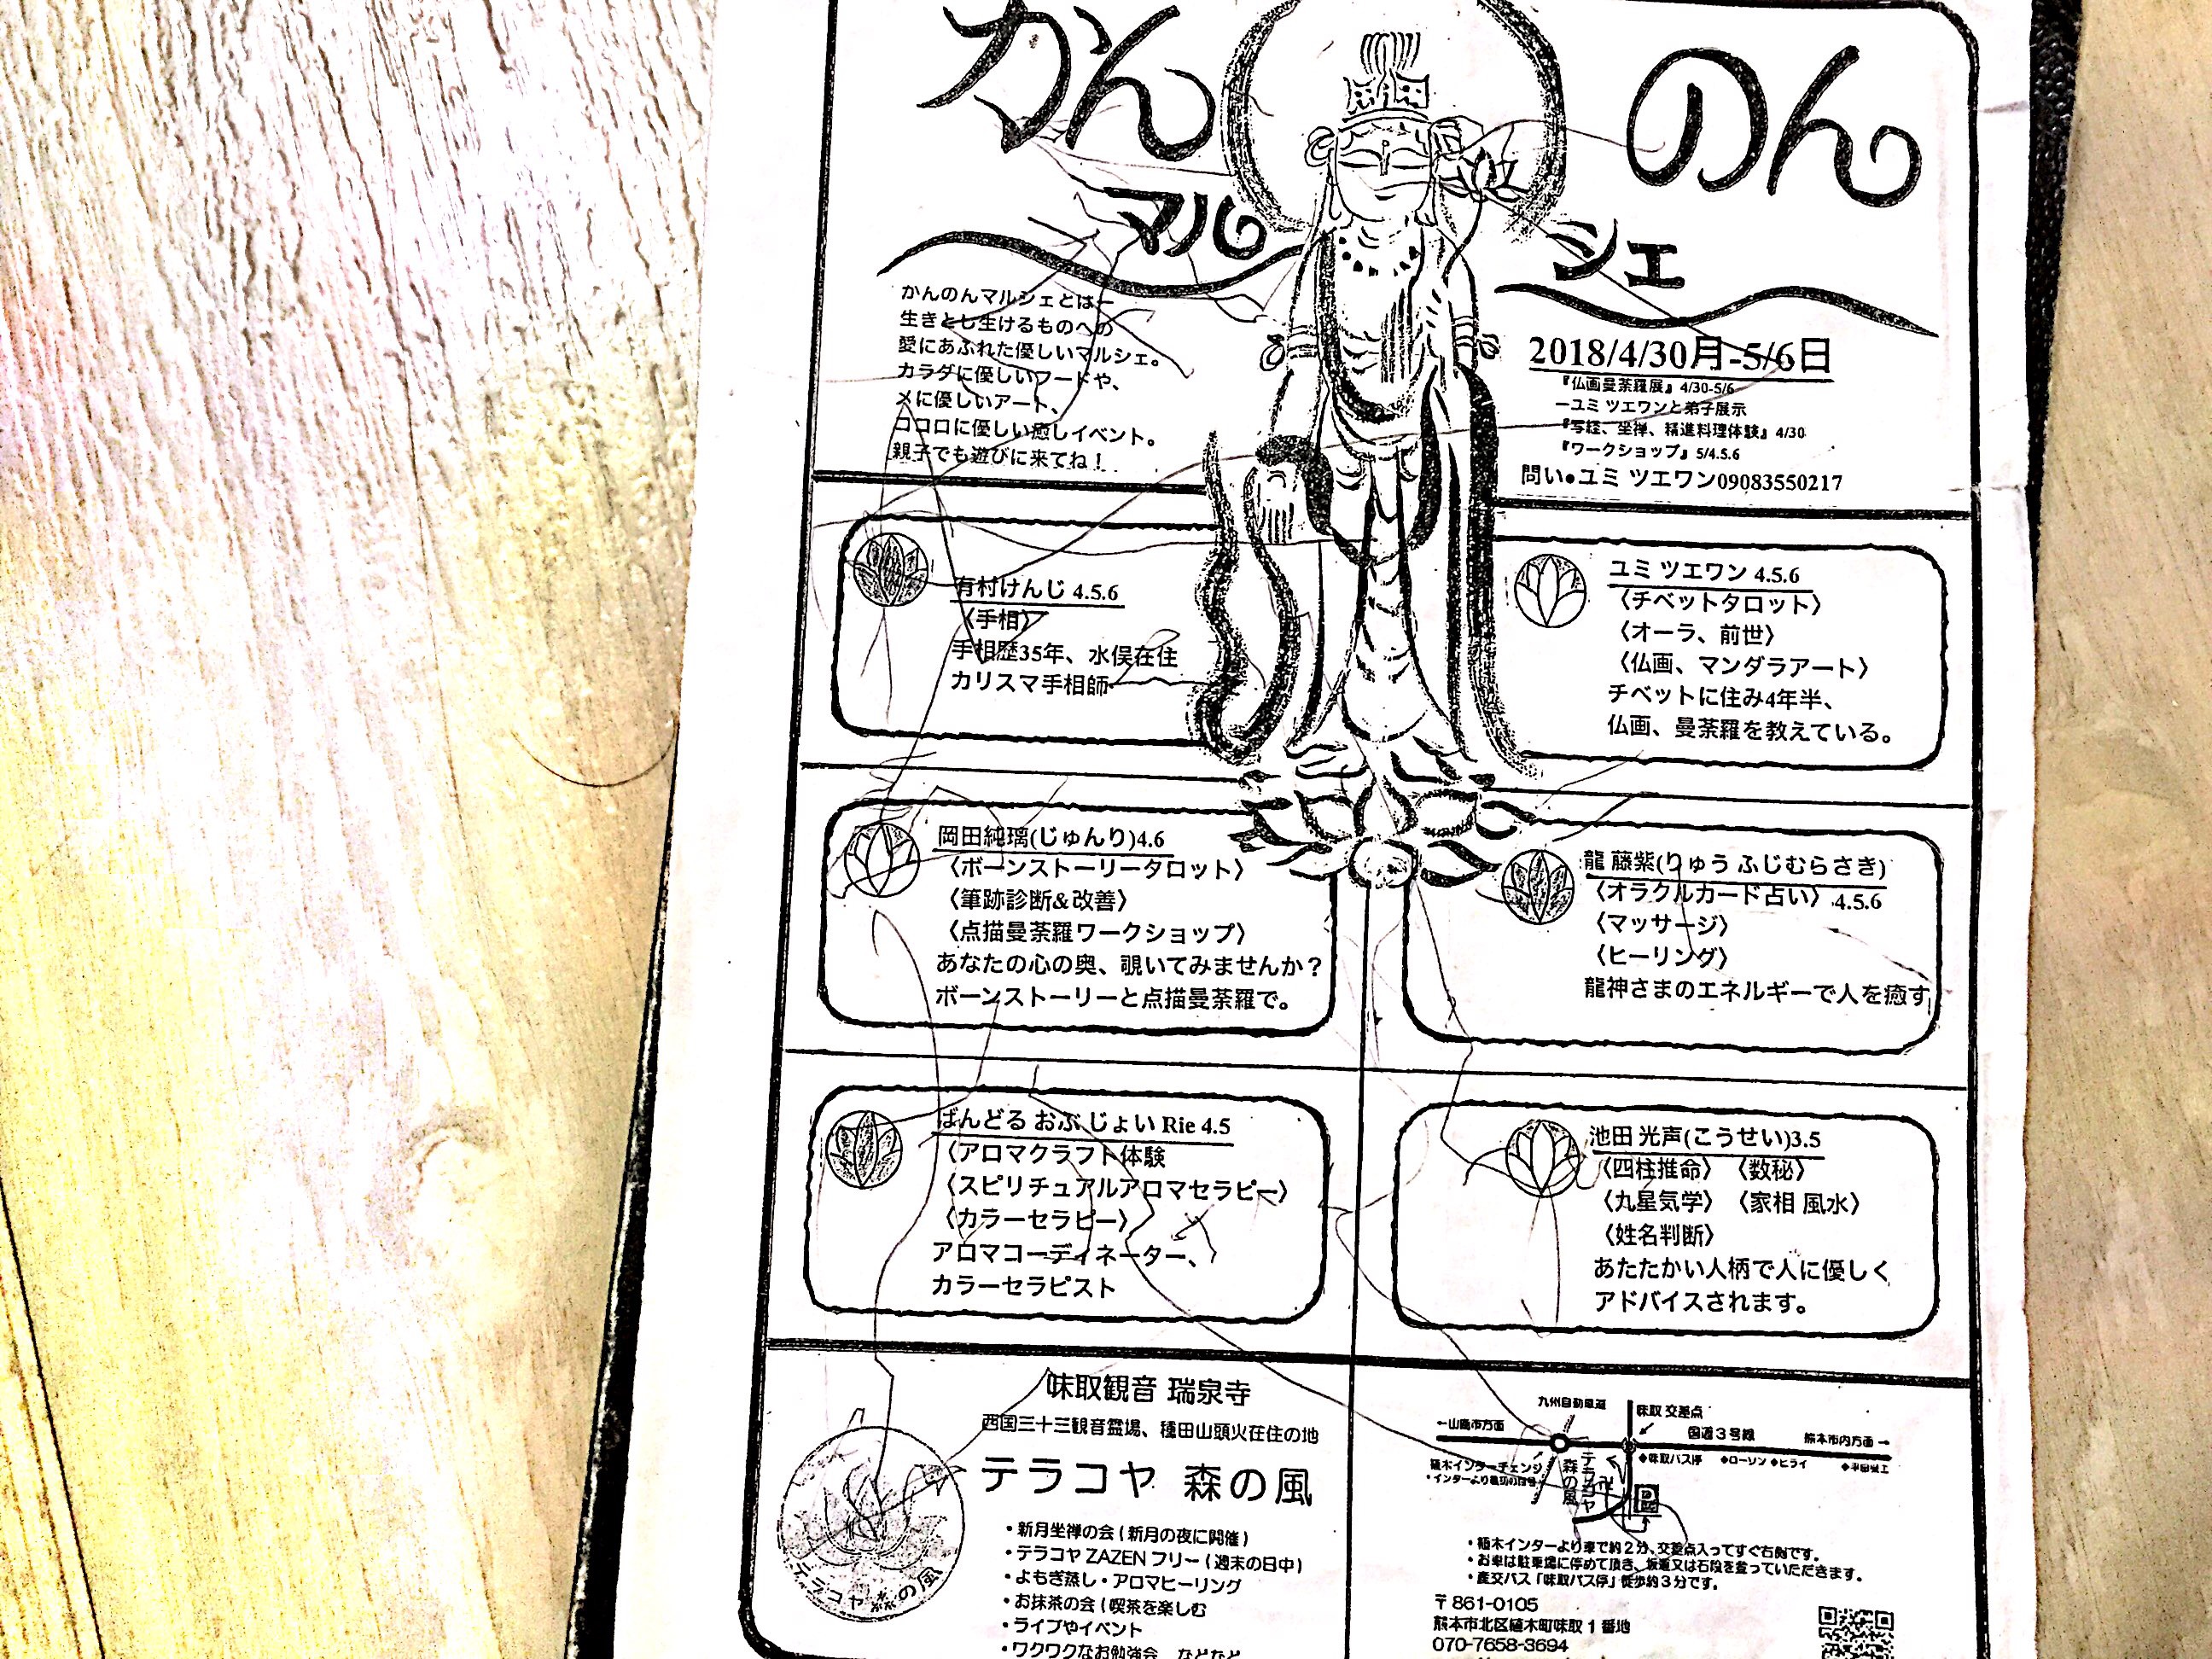 かんのん
マルシェ
かんのんマルシェとはー
生きとし生けるものへの
愛にあふれた優しいマルシェ。
カラダに優しいフードや、
メに優しいアート、
ココロに優しい癒しイベント。
親子でも遊びに来てね！
2018/4/30月-5/6日
『仏画曼荼羅展』4/30-5/6
ーユミ ツエワンと弟子展示
『写経、坐禅、精進料理体験』4/30
『ワークショップ』5/4.5.6
問い●ユミ ツエワン09083550217
有村けんじ 4.5.6
〈手相〉
手相歴35年、水俣在住
カリスマ手相師
ユミ ツエワン 4.5.6
〈チベットタロット〉
〈オーラ、前世〉
〈仏画、マンダラアート〉
チベットに住み4年半、
仏画、曼荼羅を教えている。
岡田純璃(じゅんり)4.6
〈ボーンストーリータロット〉
〈筆跡診断&改善〉
〈点描曼荼羅ワークショップ〉
あなたの心の奥、覗いてみませんか？
ボーンストーリーと点描曼荼羅で。
龍 藤紫(りゅう ふじむらさき)
〈オラクルカード占い〉4.5.6
〈マッサージ〉
〈ヒーリング〉
龍神さまのエネルギーで人を癒す
ばんどる おぶ じょい Rie 4.5
〈アロマクラフト体験
〈スピリチュアルアロマセラピー〉
〈カラーセラピー〉
アロマコーディネーター、
カラーセラピスト
池田 光声(こうせい)3.5
〈四柱推命〉 〈数秘〉
〈九星気学〉 〈家相 風水〉
〈姓名判断〉
あたたかい人柄で人に優しく
アドバイスされます。
味取観音 瑞泉寺
西国三十三観音霊場、種田山頭火在住の地
テラコヤ 森の風
・新月坐禅の会 ( 新月の夜に開催 )
・テラコヤ ZAZEN フリー ( 週末の日中)
・よもぎ蒸し・アロマヒーリング
・お抹茶の会 ( 喫茶を楽しむ
・ライブやイベント
・ワクワクなお勉強会 などなど
テラコヤ 森の風
九州自動車道
味取 交差点
←山鹿市方面
国道３号線
熊本市内方面→
植木インターチェンジ
◆味取バス停
◆ローソン
◆ヒライ
テラコヤ
森の風
P
・植木インターより車で約２分、交差点入ってすぐ右側です。
・お車は駐車場に停めて頂き、坂道又は石段を登っていただきます。
・産交バス「味取バス停」徒歩約３分です。
〒861-0105
熊本市北区植木町味取１番地
070-7658-3694